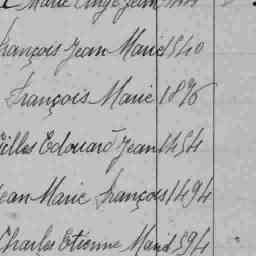 Marie Ange Jean
François Jean Marie 1540
François Marie 1876
Gilles Edouard Jean 1454
Jean Marie François 1494
Charles Etienne Marie 1594